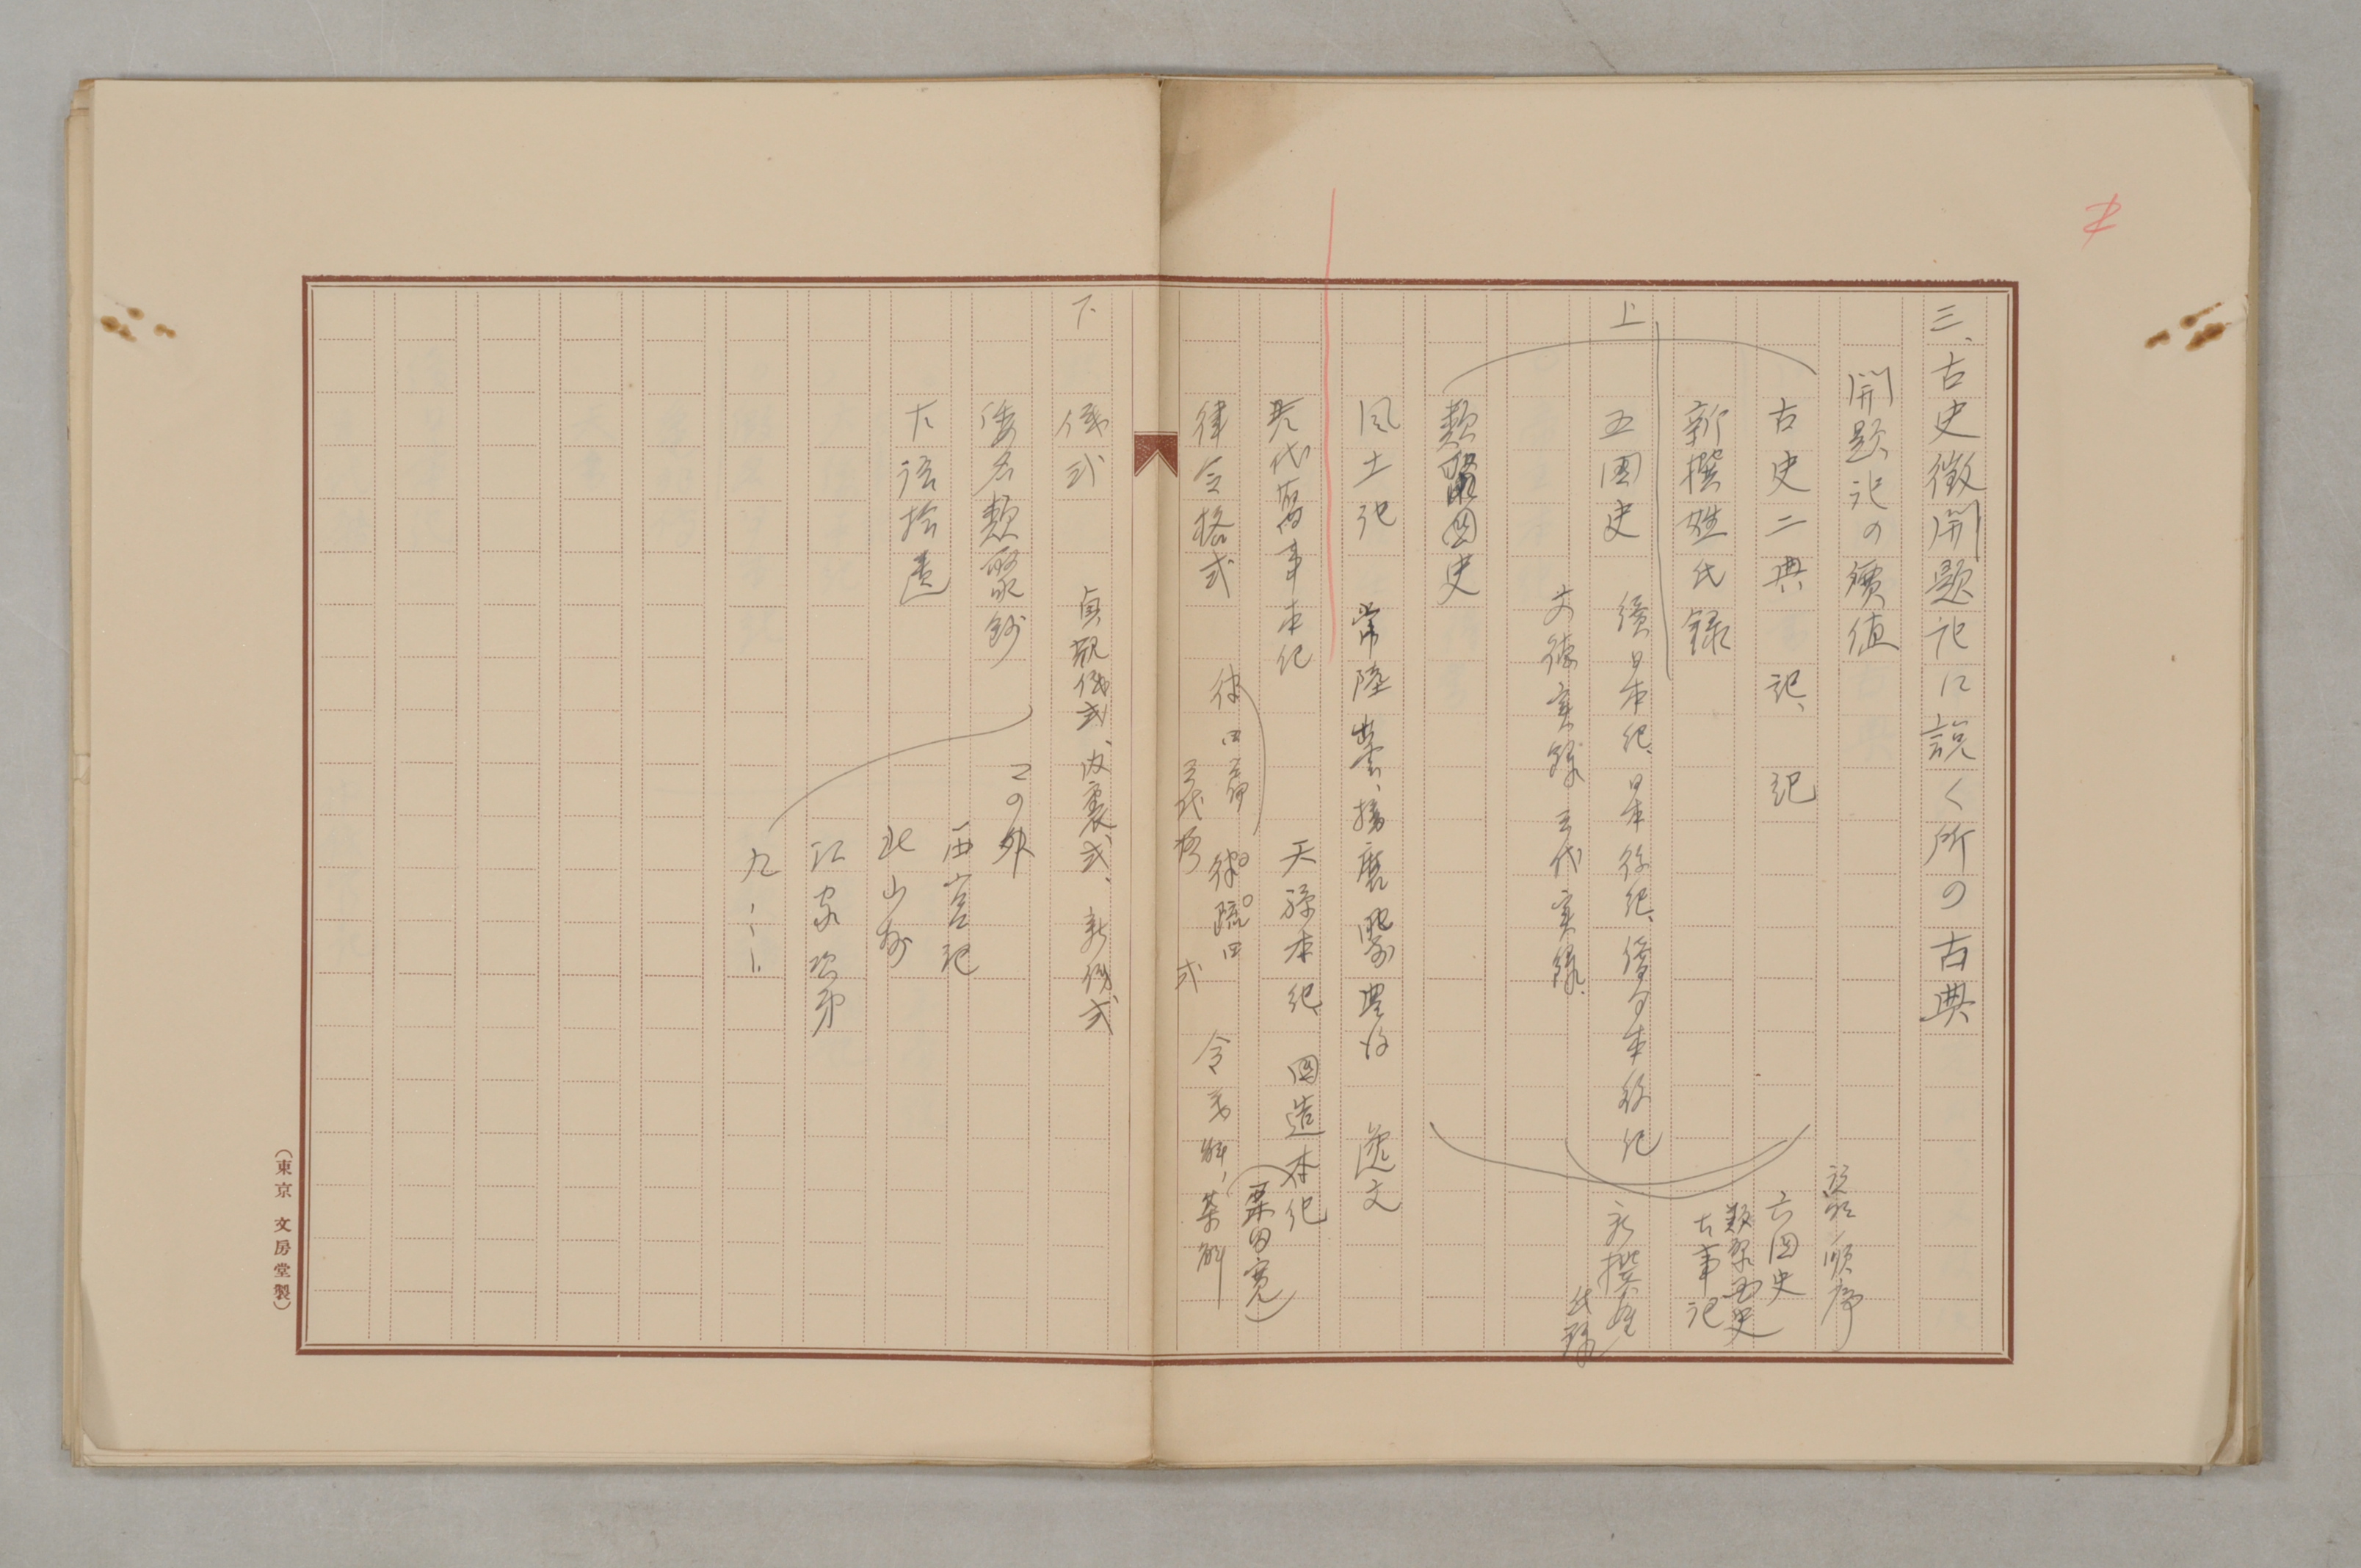 三、古史徴開題記に説く所の古典
開題記の價値
古史二典 記、紀
新撰姓氏録
上
五國史 續日本紀、日本後紀、續日本後紀
文徳実録 三代実録、
類聚国史
風土記 常陸 出雲、播磨 肥前 豊後 逸文
先代舊事本紀 天孫本紀、國造本紀
(栗田寛)
律令格式 律 四 律疏 四 令義解、集解
三代格 式
順序
六国史
類聚国史
古事記
新撰姓
氏録
下
儀式 貞観儀式、内裏式、新儀式
倭名類聚鈔
古語拾遺
この外
西宮記
北山抄
江家次第
九、、、
(東京 文房堂製)